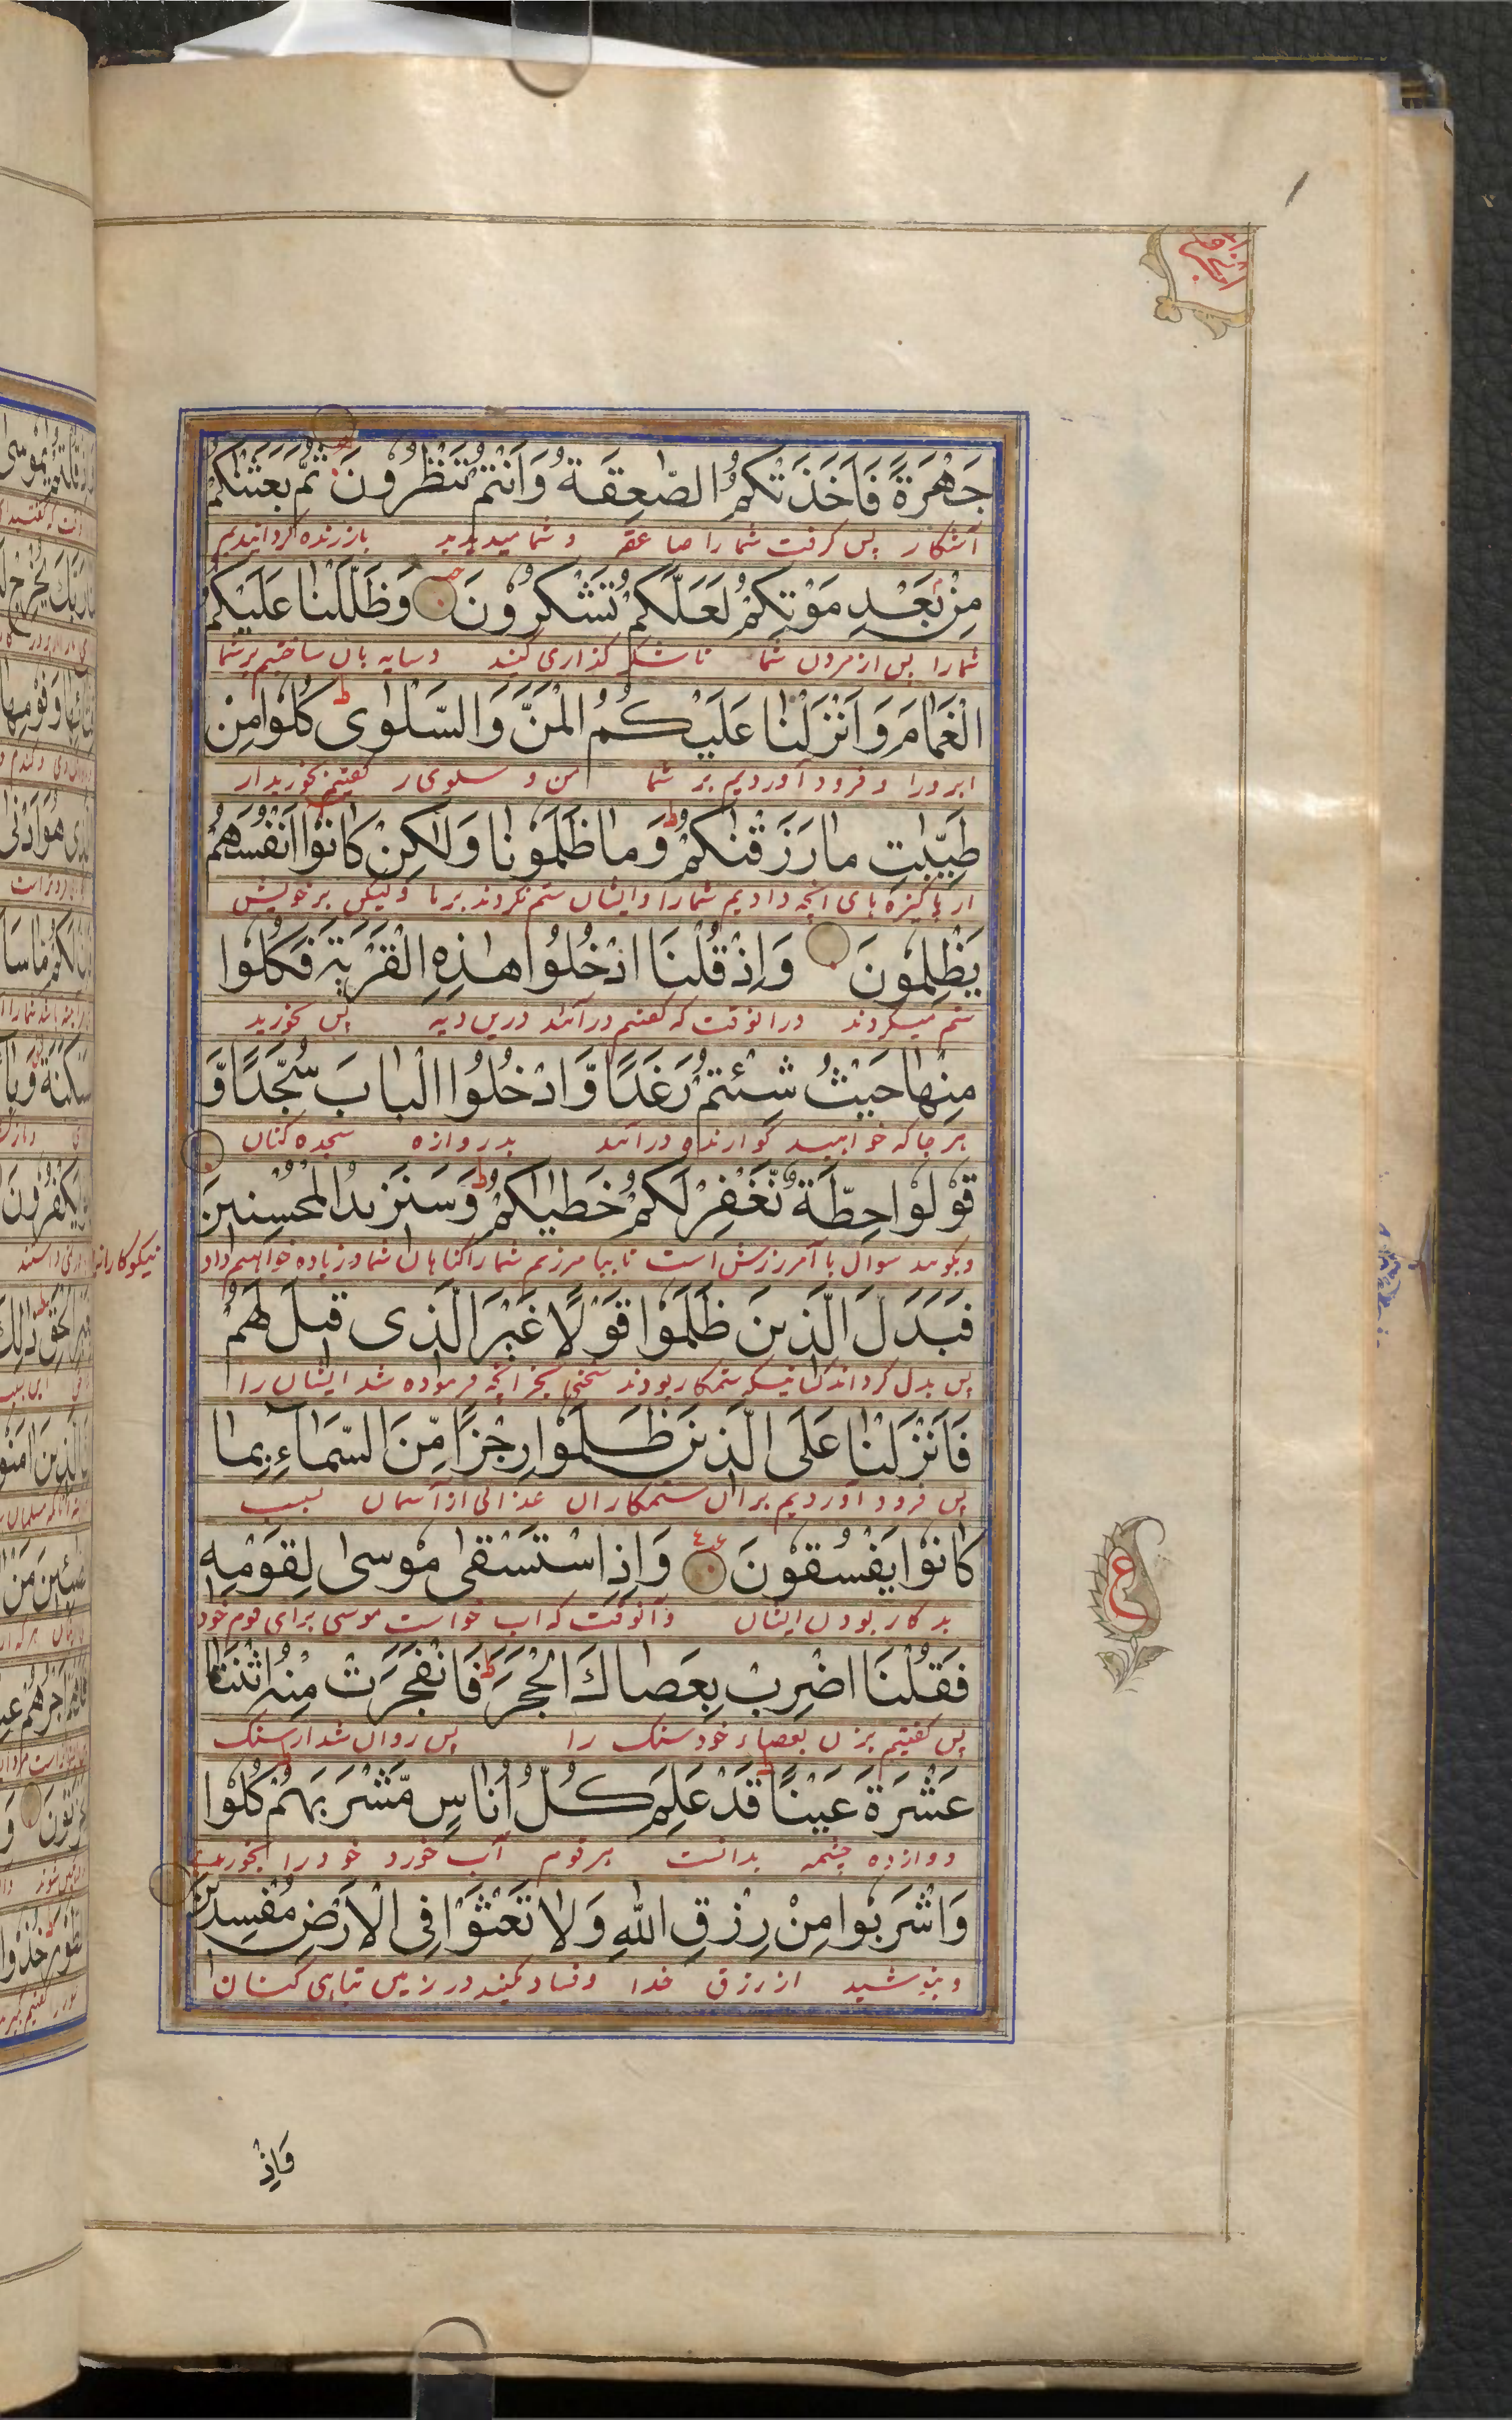 جَهْرَةً فَاَخَذَتْكُمُ الصّٰعِقَةُ وَاَنْتُمْ تَنْظُرُونَ ثُمَّ بَعَثْنٰكُمْ
آشکار پس گرفت شما را صاعقه و شما میدیدید باز زنده گردانیدیم
مِنْ بَعْدِ مَوْتِكُمْ لَعَلَّكُمْ تَشْكُرُونَ وَظَلَّلْنٰا عَلَيْكُمُ
شما را پس از مردن شما تا شکر گذاری کنید و سایه بان ساختیم بر شما
الْغَمٰامَ وَاَنْزَلْنٰا عَلَيْكُمُ الْمَنَّ وَالسَّلْوٰى ط كُلُوا مِنْ
ابر ورا و فرود آوردیم بر شما من و سلوی ر گفتیم بخورید از
طَيِّبٰتِ مٰا رَزَقْنٰكُمْ ط وَمٰا ظَلَمُونٰا وَلٰكِنْ كٰانُوْا اَنْفُسَهُمْ
از پاکیزه های انچه دادیم شما را و ایشان ستم نکردند بر ما و لیکن بر خویش
يَظْلِمُونَ وَاِذْ قُلْنَا ادْخُلُوا هٰذِهِ الْقَرْيَةَ فَكُلُوا
ستم میکردند و رانوقت که گفتیم درآئید درین دیه پس بخورید
مِنْهٰا حَيْثُ شِئْتُمْ رَغَدًا وَّادْخُلُوا الْبٰابَ سُجَّدًا وَّ
هر جا که خواهید گوارنده درآئید بدروازه سجده کنان
قُوْلُوا حِطَّةٌ نَّغْفِرْ لَكُمْ خَطٰيٰكُمْ ط وَسَنَزِيدُ الْمُحْسِنِينَ
و بگوئید سوال ما آمرزش است تا بیامرزیم شما را گناهان شما و زیاده خواهیم داد نیکوکارانرا
فَبَدَّلَ الَّذِينَ ظَلَمُوا قَوْلًا غَيْرَ الَّذِى قِيلَ لَهُمْ
پس بدل کردند کسانیکه ستمکار بودند سخنی بجز انچه فرموده شد ایشان را
فَاَنْزَلْنٰا عَلَى الَّذِينَ ظَلَمُوا رِجْزًا مِّنَ السَّمٰٓاءِ بِمٰا
پس فرود آوردیم بران ستمکاران عذابی از آسمان بسبب
كٰانُوْا يَفْسُقُوْنَ وَاِذِ اسْتَسْقٰى مُوسٰى لِقَوْمِهٖ
بدکار بودن ایشان و آنوقت که اب خواست موسی برای قوم خود
فَقُلْنَا اضْرِبْ بِعَصٰاكَ الْحَجَرَ ط فَانْفَجَرَتْ مِنْهُ اثْنَتٰا
پس گفتیم بزن بعصاء خود سنگ را پس روان شد از سنگ
عَشْرَةَ عَيْنًا ط قَدْ عَلِمَ كُلُّ اُنَاسٍ مَّشْرَبَهُمْ ط كُلُوا
دوازده چشمه بدانست هر قوم آب خورد خود را بخورید
وَاشْرَبُوا مِنْ رِزْقِ اللّٰهِ وَلٰا تَعْثَوْا فِى الْاَرْضِ مُفْسِدِينَ
و بنوشید از رزق خدا و فساد مکنید در زمین تباهی کنان
ع
وَاِذْ